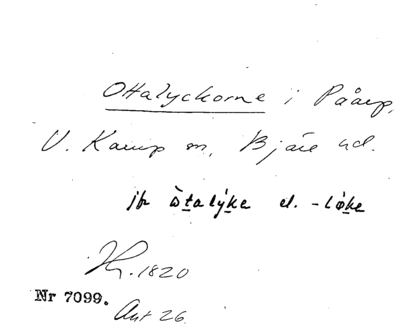 Ottalyckorne i Påarp,
V. Karup sn, Bjäre hd.
jfr òtalýke el. -løke
1820
Nr 7099.
Ant 26